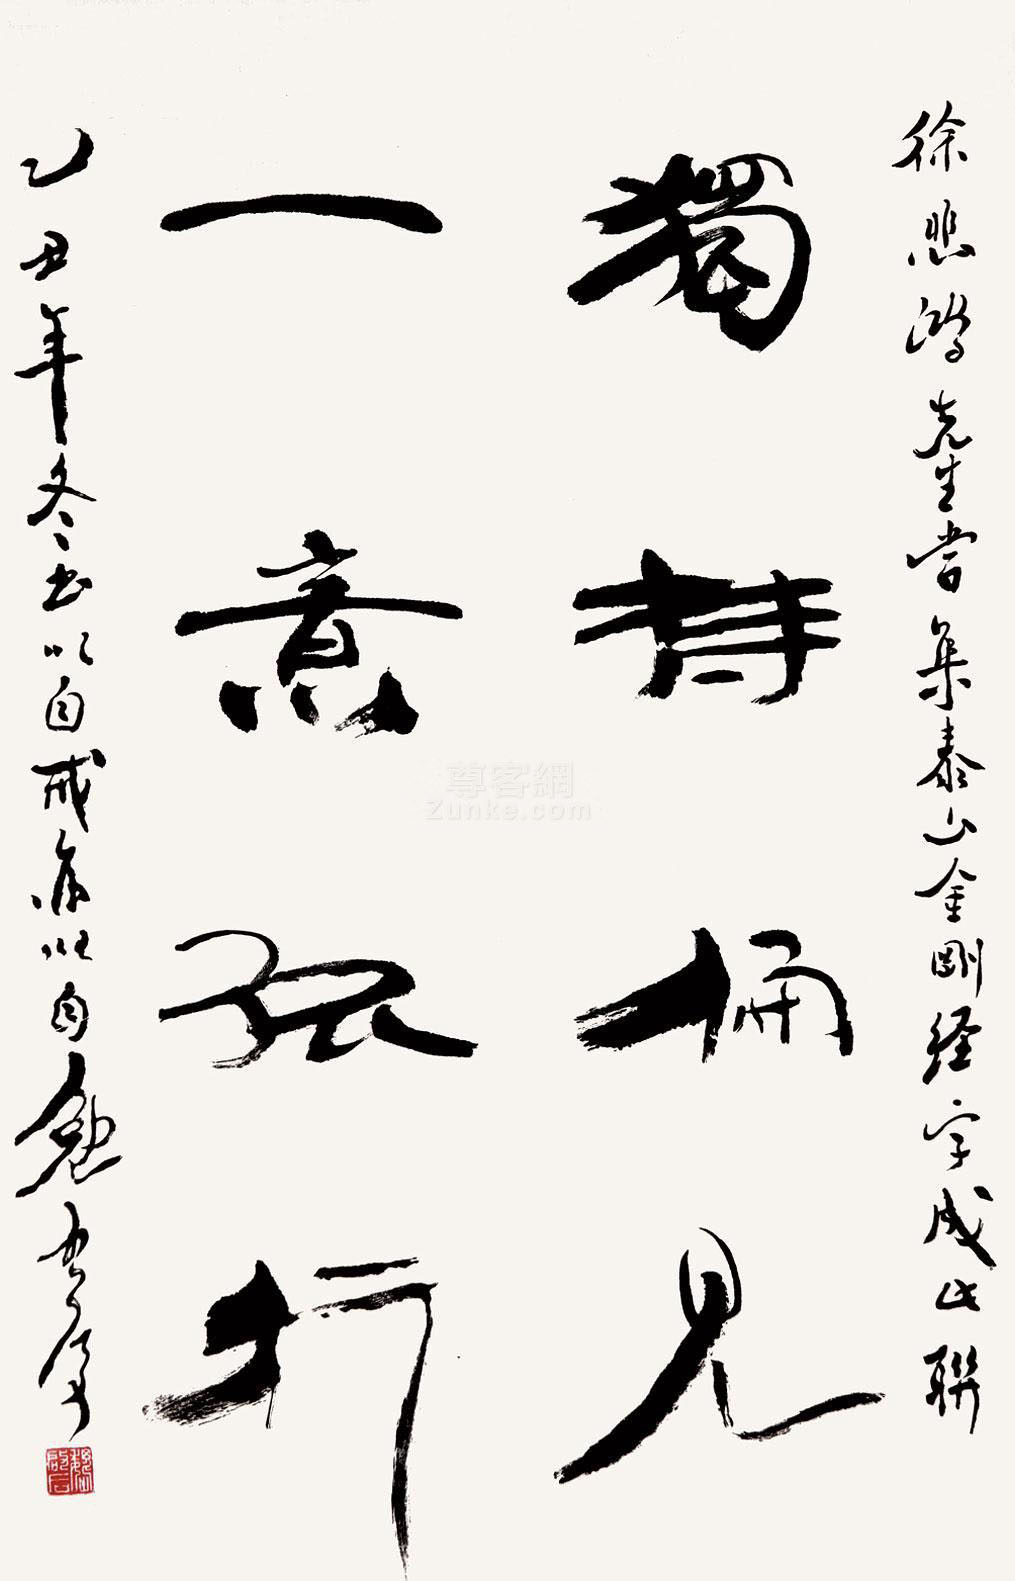 徐悲鴻先生嘗集泰山金剛經字成此聯
獨持偏見
一意孤行
乙丑年冬书以自戒亦以自勉啓後
魏啟后
尊客網
Zunke.com